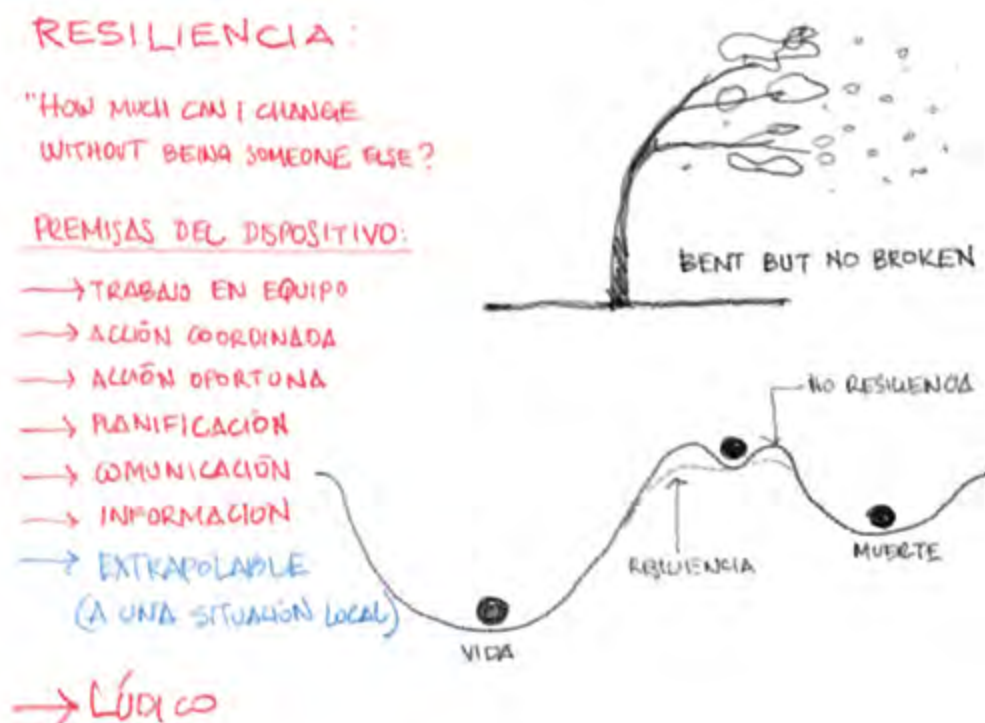 RESILIENCIA:
"HOW MUCH CAN I CHANGE
WITHOUT BEING SOMEONE ELSE?
PREMISAS DEL DISPOSITIVO:
→ TRABAJO EN EQUIPO
→ ACCIÓN COORDINADA
→ ACCIÓN OPORTUNA
→ PLANIFICACIÓN
→ COMUNICACIÓN
→ INFORMACION
→ EXTRAPOLABLE
(A UNA SITUACIÓN LOCAL)
→ LÚDICO
BENT BUT NO BROKEN
NO RESILIENCIA
RESILIENCIA
MUERTE
VIDA